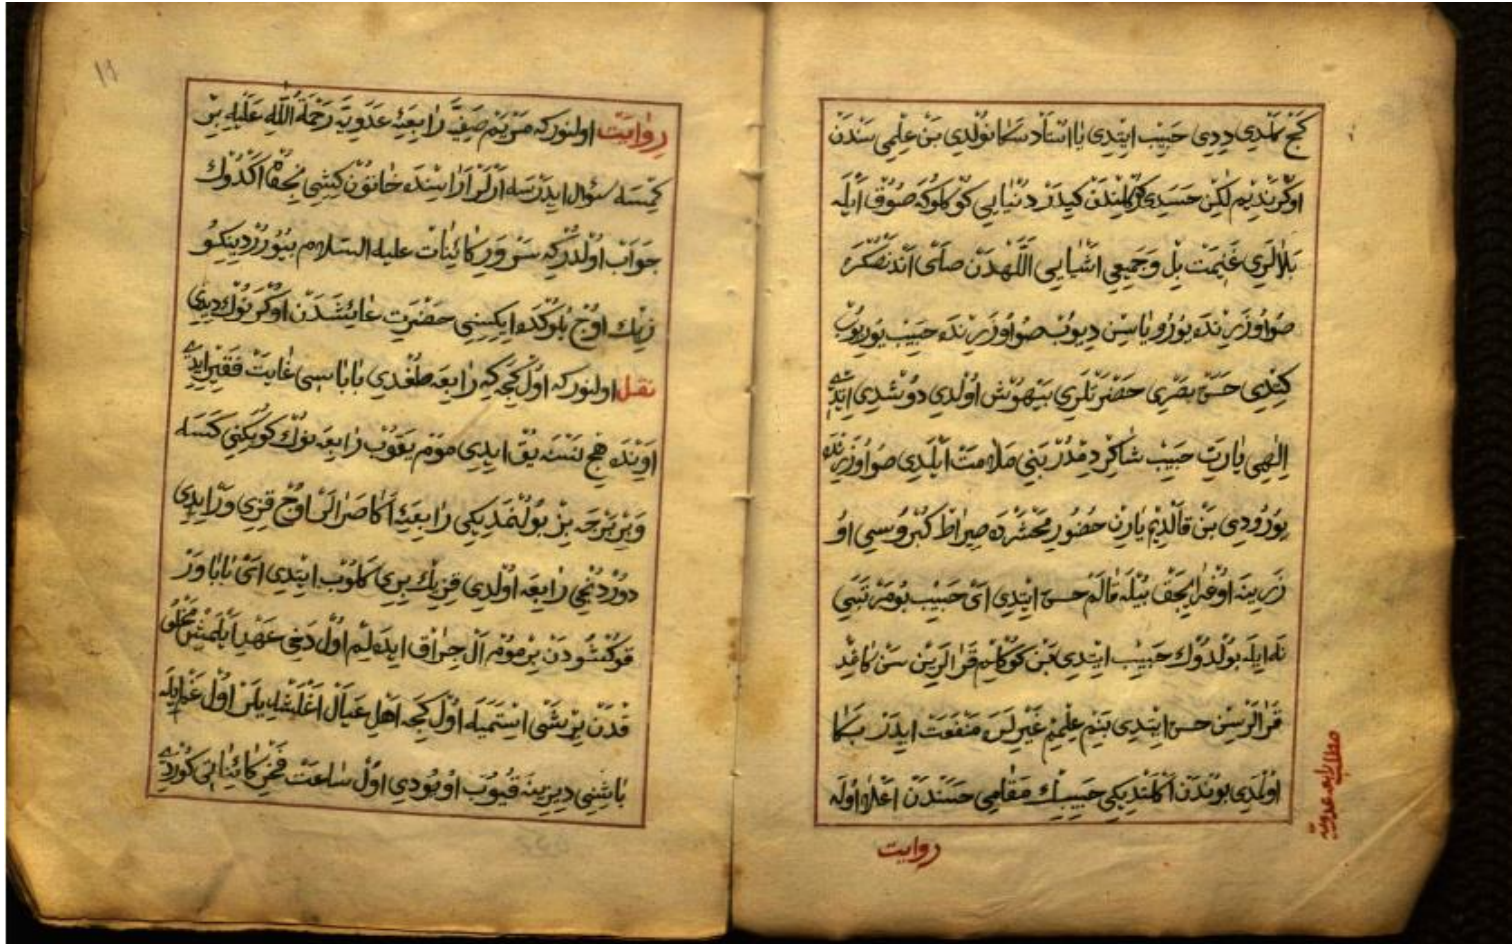 كج كلدي ددى حبيب ايتدى يا استاد سكا نولدي بن علمى سندن
اوكرنديم لكن حسدى كوكلندن كيدر دنيايى كوكلوكه صوق ايله
بلالرى غنيمت بل وجميعى اشيايى اللهدن صلى اندنصكره
صو اوزرنده يورويا سن ديوب صو اوزرنده حبيب يوريوب
كتدى حسن بصرى حضرتلرى بيهوش اولدي دوشدى ايتدى
الهى يارب حبيب شاكردمدر بنى ملامت ايلدى صو اوزرنده
يورودى بن قالديم يارين حضور محشرده صراط كبروسى او
زرينه اوغراييجق بيله قالم حسن ايتدى اى حبيب بو مرتبه يى
نه ايله بولدوك حبيب ايتدى بن كوكلم قرالرين سن كاغد
قرالرسن حسن ايتدى بنم علميم غيرلره منفعت ايدر بكا
اولمدى بوندن اكلنديكى حبيبك مقامى حسندن اعلا اوله
مطلب رابعه عدويه
روايت
١٩
روايت اولنور كه مريم صفيه رابعهٔ عدويه رحمة الله عليه بر
كمسه سؤال ايدرسه ارلر اراسنده خاتون كشى نجون اكدوك
جواب اولدر كه سرور كائنات عليه السلام بيورر دينكو
زيك اوج بلوكده ايكسنى حضرت عايشدن اوكرنوك ديدى
نقل اولنور كه اول كجه كه رابعه طغدي باباسى غايت فقير ايدى
اونده هج نسنه يق ايدى موم يقوب رابعه نوك كوبكنى كسه
وبر برجه بز بولنمديكى رابعهٔ اكا صرالر اوج قزى وار ايدى
دوردنجى رابعه اولدى قزيك برى كلوب ايتدى اى بابا ور
قوكشودن بر موم ال جراق ايده لم اول دخى عهد ايلمش مخلو
قدن بر شى استميه اول كجه اهل عيال اغلشديلر اول غم ايله
باشنى ديزينه قيوب اويودى اول ساعت فخر كائناتى كوردى